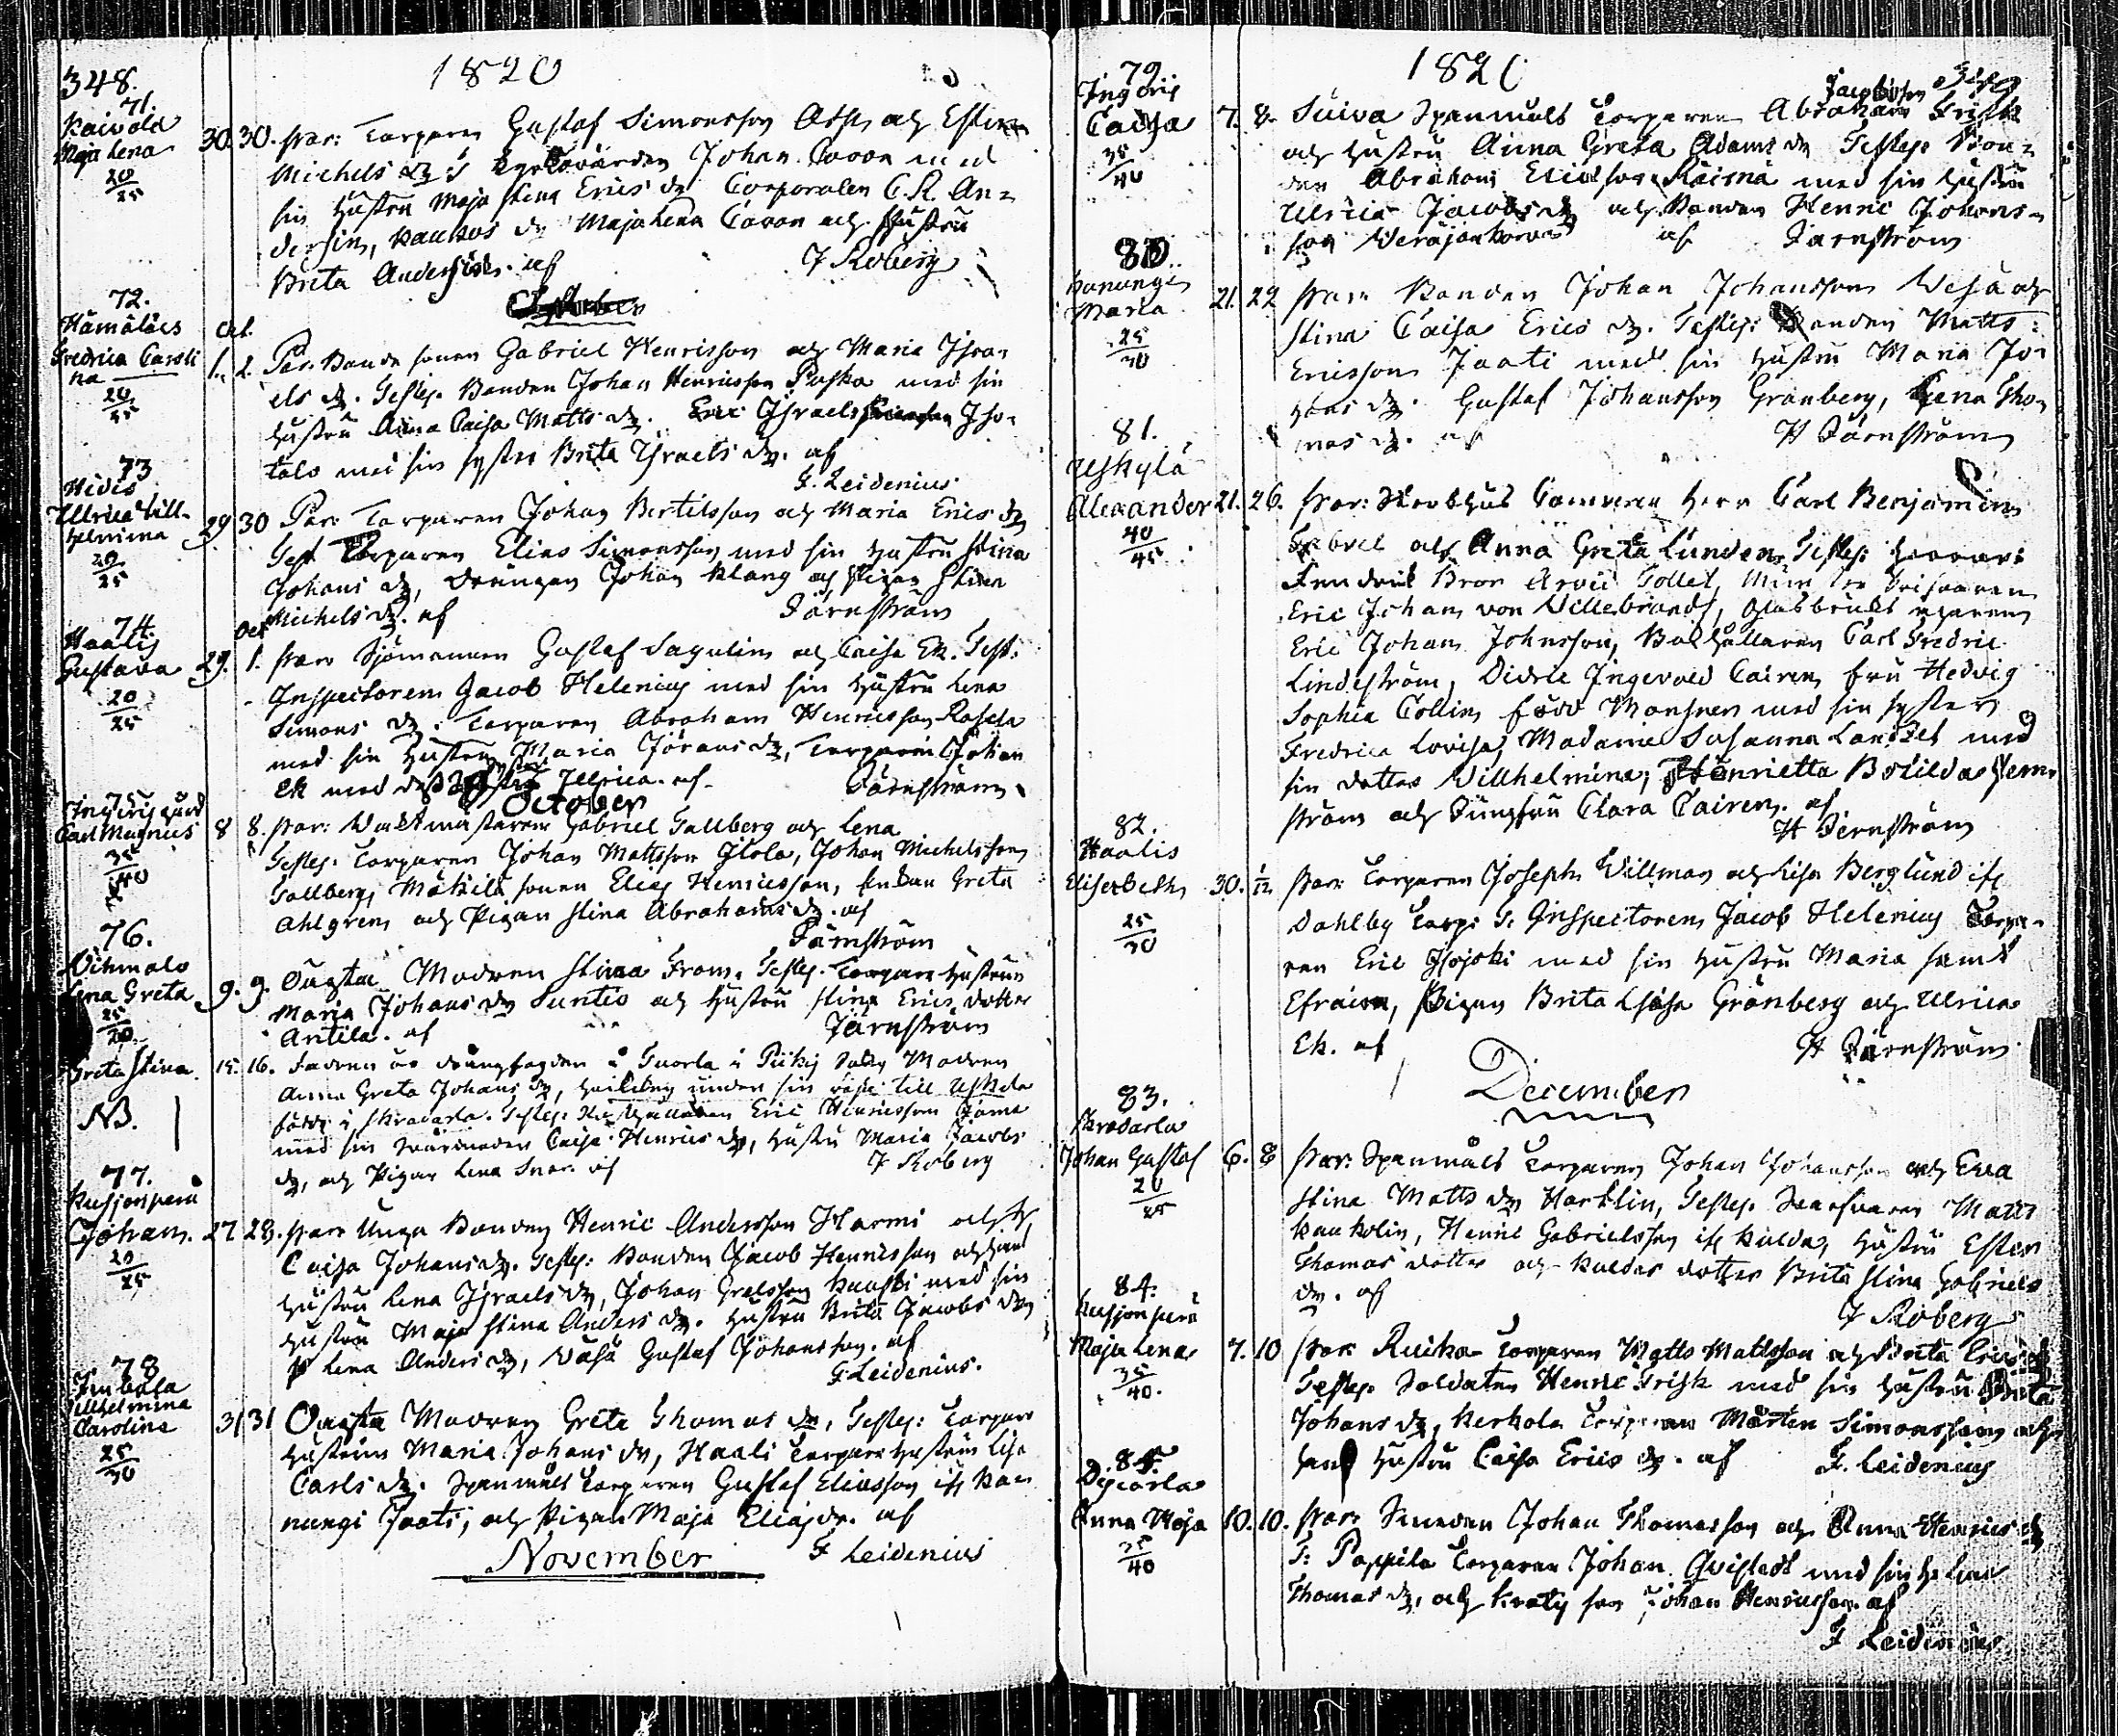 348.
1820
71.
Kaivola
Maja Lena
20
25
30. 30. Par: Torparen Gustaf Simonsson och Ester
Michels dr T Johan Cavon med
sin hustru Maja Stina Erics dr Corporalen C. R. An=
dersin, Kaukos dr Maja Lena Cavon och Hustru
Brita af
J Roberg
72.
Hämäläis
Fredrica Caroli
na
20
25
Oct.
1. 2. Par. Bonde sonen Gabriel Henrisson och Maria Isra=
els dr. Testes. Bonden Johan Henricsson Puska med sin
hustru Anna Caisa Matts dr. Eric Israelsson Iso=
talo med sin syster Brita Israels dr. af
F. Leidenius
73
Hidis
Ullrica Vill-
helmina
20
25
29 30 Par: Torparen Johan Bertilsson och Maria Erics dr
Test Torparen Elias Simonsson med sin hustru Stina
Johans dr, Drängen Johan Klang och Pigan Stina
Michels dr. af
Järnström
74.
Haalis
Gustava
20
25
Oct
29. 1. Par Sjömannen Gustaf Sagulin och Caisa Ek. Test:
Inspectoren Jacob Helenius med sin hustru Lena
Simons dr. Torparen Abraham Henricsson Rosala
med sin hustru Maria Jörans dr, Torparen Johan
Ek med dess syster Ullrica. af
Järnström
October
75
Ingeris gård
Carl Magnus
35
40
8 8. Par: Vaktmästaren Gabriel Gallberg och Lena
Testes. Torparen Johan Mattsson Isola, Johan Michelsson
Gallberg, Mäkilä sonen Elias Henricsson, Enkan Greta
Ahlgren och Pigan Stina Abrahams dr. af
Järnström
76.
Vihmalo
Lena Greta
25
30
9. 9. Oägta Modren Stina From. Testes. Torpare hustrun
Maria Johans dr Suntio och hustru Stina Erics dotter
Antila. af
Järnström
Greta Stina.
NB.
15. 16. Fadren är drängfogden å Tuorla i Pikis Sokn Modren
Anna Greta Johans dr, under sin resa till Uskela
född i Skracarla. Testes: Eric Henricsson
med sin Svärmoder Caisa Henrics dr, hustru Maria Jacobs
dr, och Pigan Lena Snar. af
J Roberg
77.
Kusjonperä
Johan.
20
25
27 28. Par Unga Bonden Henric Andersson Harmi och h.
Caisa Johans dr. Testes: Bonden Jacob Henricsson och hans
hustru Lena Israels dr, Johan Gretsson Kauski med sin
hustru Maja Stina Anders dr. hustru Brita Jacobs dr
P Lena Anders dr, Gustaf Johansson. af
F Leidenius.
78
Imbola
Vilhelmina
Carolina
25
30
31 31 Oägta Modren Greta Thomas dr, Testes: Torpare
hustrun Maria Johans dr, Haali Torpare hustrun Lisa
Carls dr. Spanmåls Torparen Gustaf Eliasson ifr Ko=
nungi Jaati, och Pigan Maja Elias dr. af
F Leidenius
November
1820
349
79.
Ingeris
Caisa
35
40
7. 8. Suiva Spanmåls Torparen Abraham Jacobsson Frisk
och hustru Anna Greta Adams dr Testes: Bon=
den Abraham Ericsson Räimä med sin hustru
Ulrica Jacobs dr och Bonden Henric Johans=
son Veräjänkorva af Järnström
80.
Konungi
Maria
25
30
21. 22 Par Bonden Johan Johansson Vesa och
Stina Caisa Erics dr. Testes: Bonden Matts
Ericsson Jaati med sin hustru Maria Jo=
hans dr. Gustaf Johansson Granberg, Lena Tho=
mas dr. af
H Järnström
81.
Uskylä
Alexander
40
45
21. 26. Par: Herr Carl Benjamin
och Anna Greta Lunden, Testes:
Bror Arvid
Eric Johan von Villebrandt, Glasbruks egaren
Eric Johan Johnsson, Bokhållaren Carl Fredric
Lindström, Didric Ingevald Cairen, fru Hedvig
Sophia Collin född Monsner med sin syster
Fredrica Lovisa, Madame Susanna Landzet med
sin dotter Villhelmina, Henrietta Botilda Jern=
ström och Jungfru Clara Cairen. af
H Jernström
82.
Haalis
Elisabeth
25
30
30. 1/12 Par: Torparen Joseph Villman och Lisa Berglund ifr
Dahlby Torp: T: Inspectoren Jacob Helenius Torpa=
ren Eric Isojoki med sin hustru Maria samt
Efraim, Pigan Brita Lisa Grönberg och Ulrica
Ek. af
H Järnström
December
83.
Skradarla
Johan Gustaf
20
25
6. 8 Par. Spanmåls Torparen Johan Johansson och Eva
Stina Matts dr Harklin, Testes. Matts
Kaukolin, Henric Gabrielsson ifr Kulda, hustru Ester
Thomas dotter och Kuldas dotter Brita Stina Gabriels
dr. af
J Roberg
84.
Kusjonperä
Maja Lena
35
40.
7. 10 Par Ruika Torparen Matts Mattsson och Brita Erics dr
Testes. Soldaten Henric Frisk med sin hustru Brita
Johans dr, Kerkola Torparen Mårten Simonsson och
hans hustru Caisa Erics dr. af
F. Leidenius
85.
Anna Maja
35
40
10. 10. Par. Smeden Johan Thomasson och Anna Henrics dr
T: Pappila Torparen Johan Qvistedt med sin h. Lena
Thomas dr, och son Johan Henricsson. af
F Leidenius